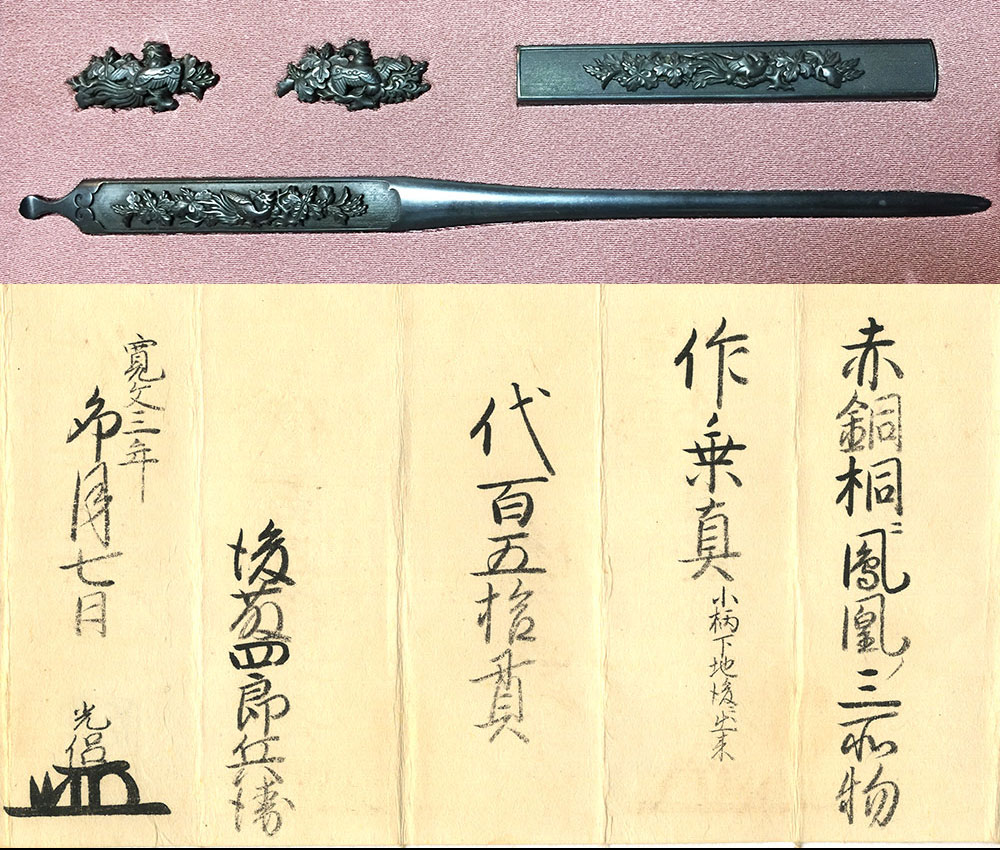 赤銅桐ニ鳳凰ノ三所物
作乗真
小柄下地後ニ出来
代百五拾貫
後藤四郎兵衛
寛文三年
卯月七日
光侶